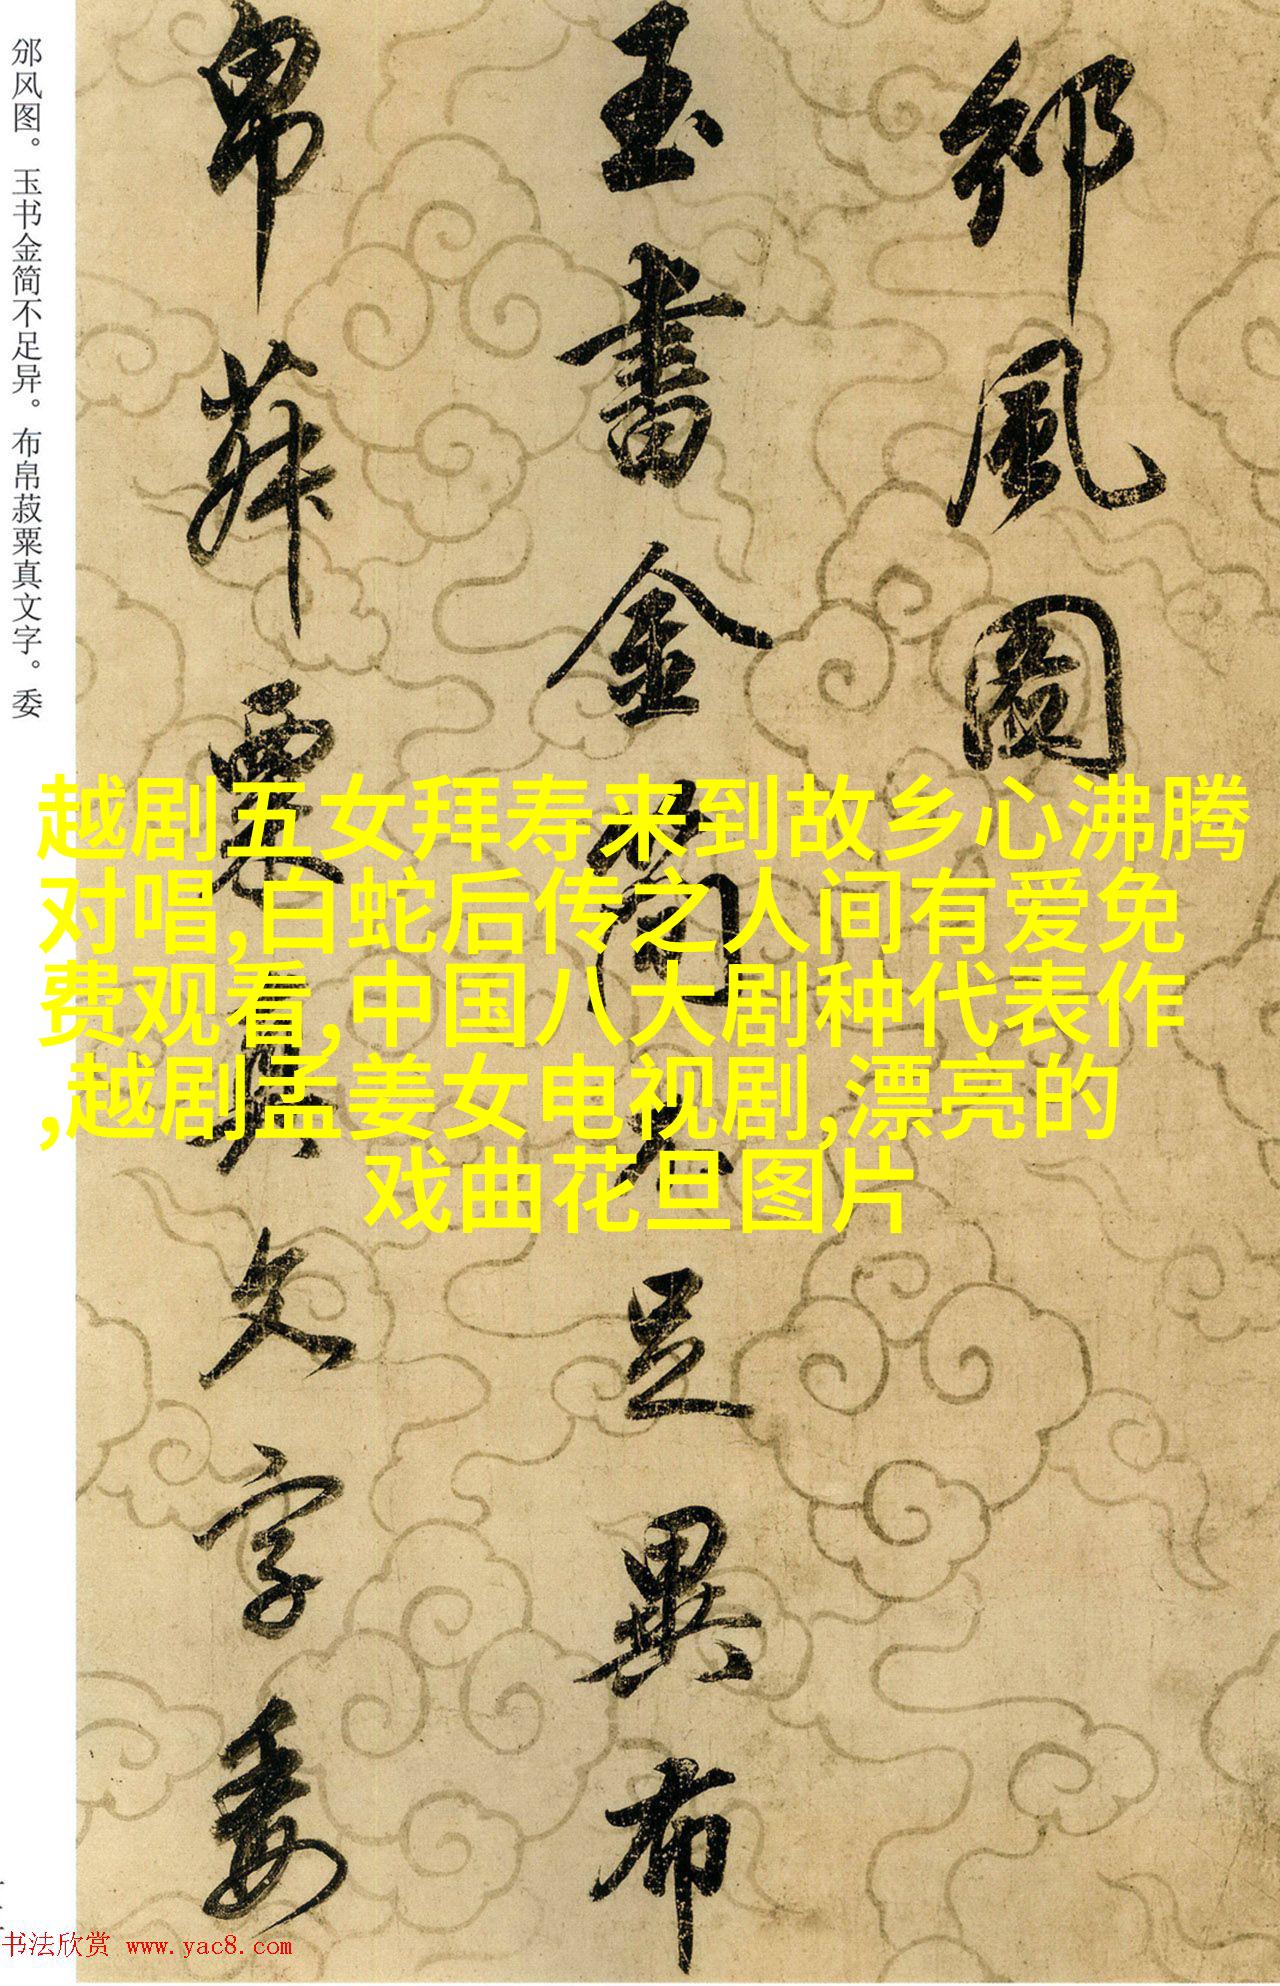 邠风图。玉书金简不足异。布帛菽粟真文字。委
邠風圖
玉書金簡不足異布
帛菽粟真文字委
越剧五女拜寿来到故乡心沸腾
对唱,白蛇后传之人间有爱免
费观看,中国八大剧种代表作
,越剧孟姜女电视剧,漂亮的
戏曲花旦图片
书法欣赏 www.yac8.com